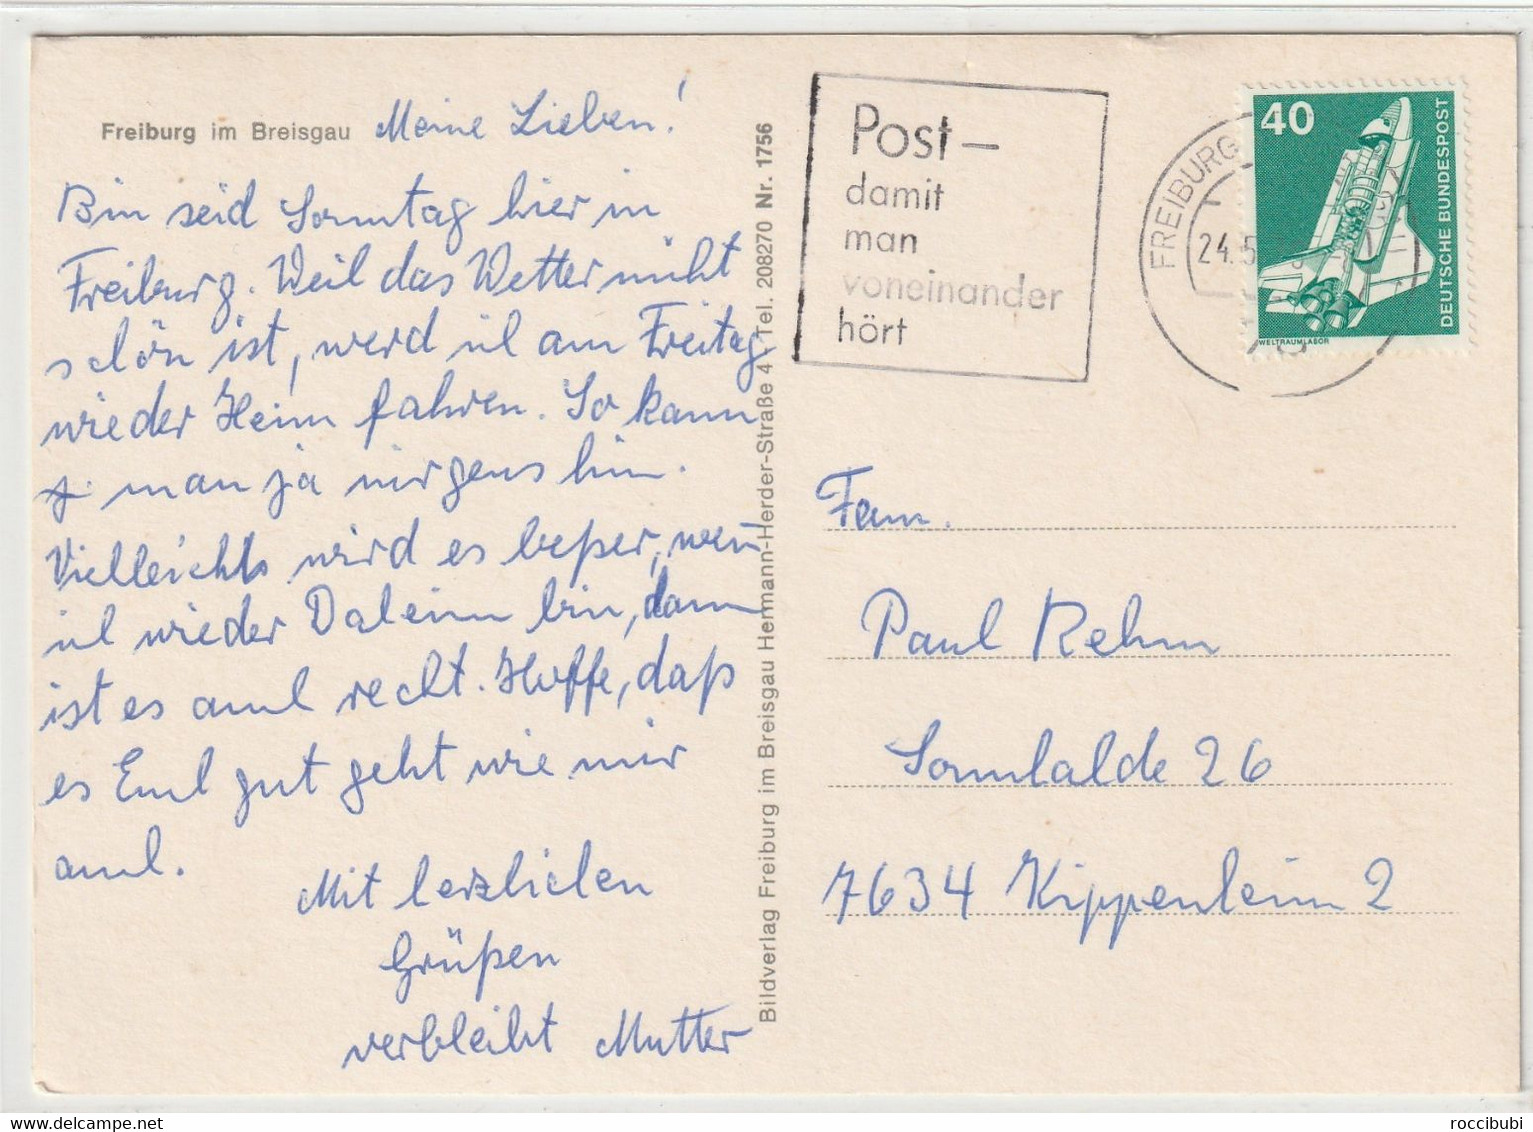 Freiburg im Breisgau
Meine Lieben!
Bin seid Sonntag hier in
Freiburg. Weil das Wetter nicht
schön ist, werd ich am Freitag
wieder Heim fahren. So kann
man ja nirgens hin.
Vielleicht wird es beßer, wen
ich wieder Daheim bin, dann
ist es auch recht. Hoffe, daß
es Euch gut geht wie mir
auch.
Mit herzlichen
Grüßen
verbleibt Mutter
Bildverlag Freiburg im Breisgau Hermann-Herder-Straße 4 Tel. 208270 Nr. 1756
Post –
damit
man
voneinander
hört
FREIBURG
24.5
40
DEUTSCHE BUNDESPOST
WELTRAUMLABOR
Fam.
Paul Rehm
Sonnhalde 26
7634 Kippenheim 2
DELCAMPE
roccibubi